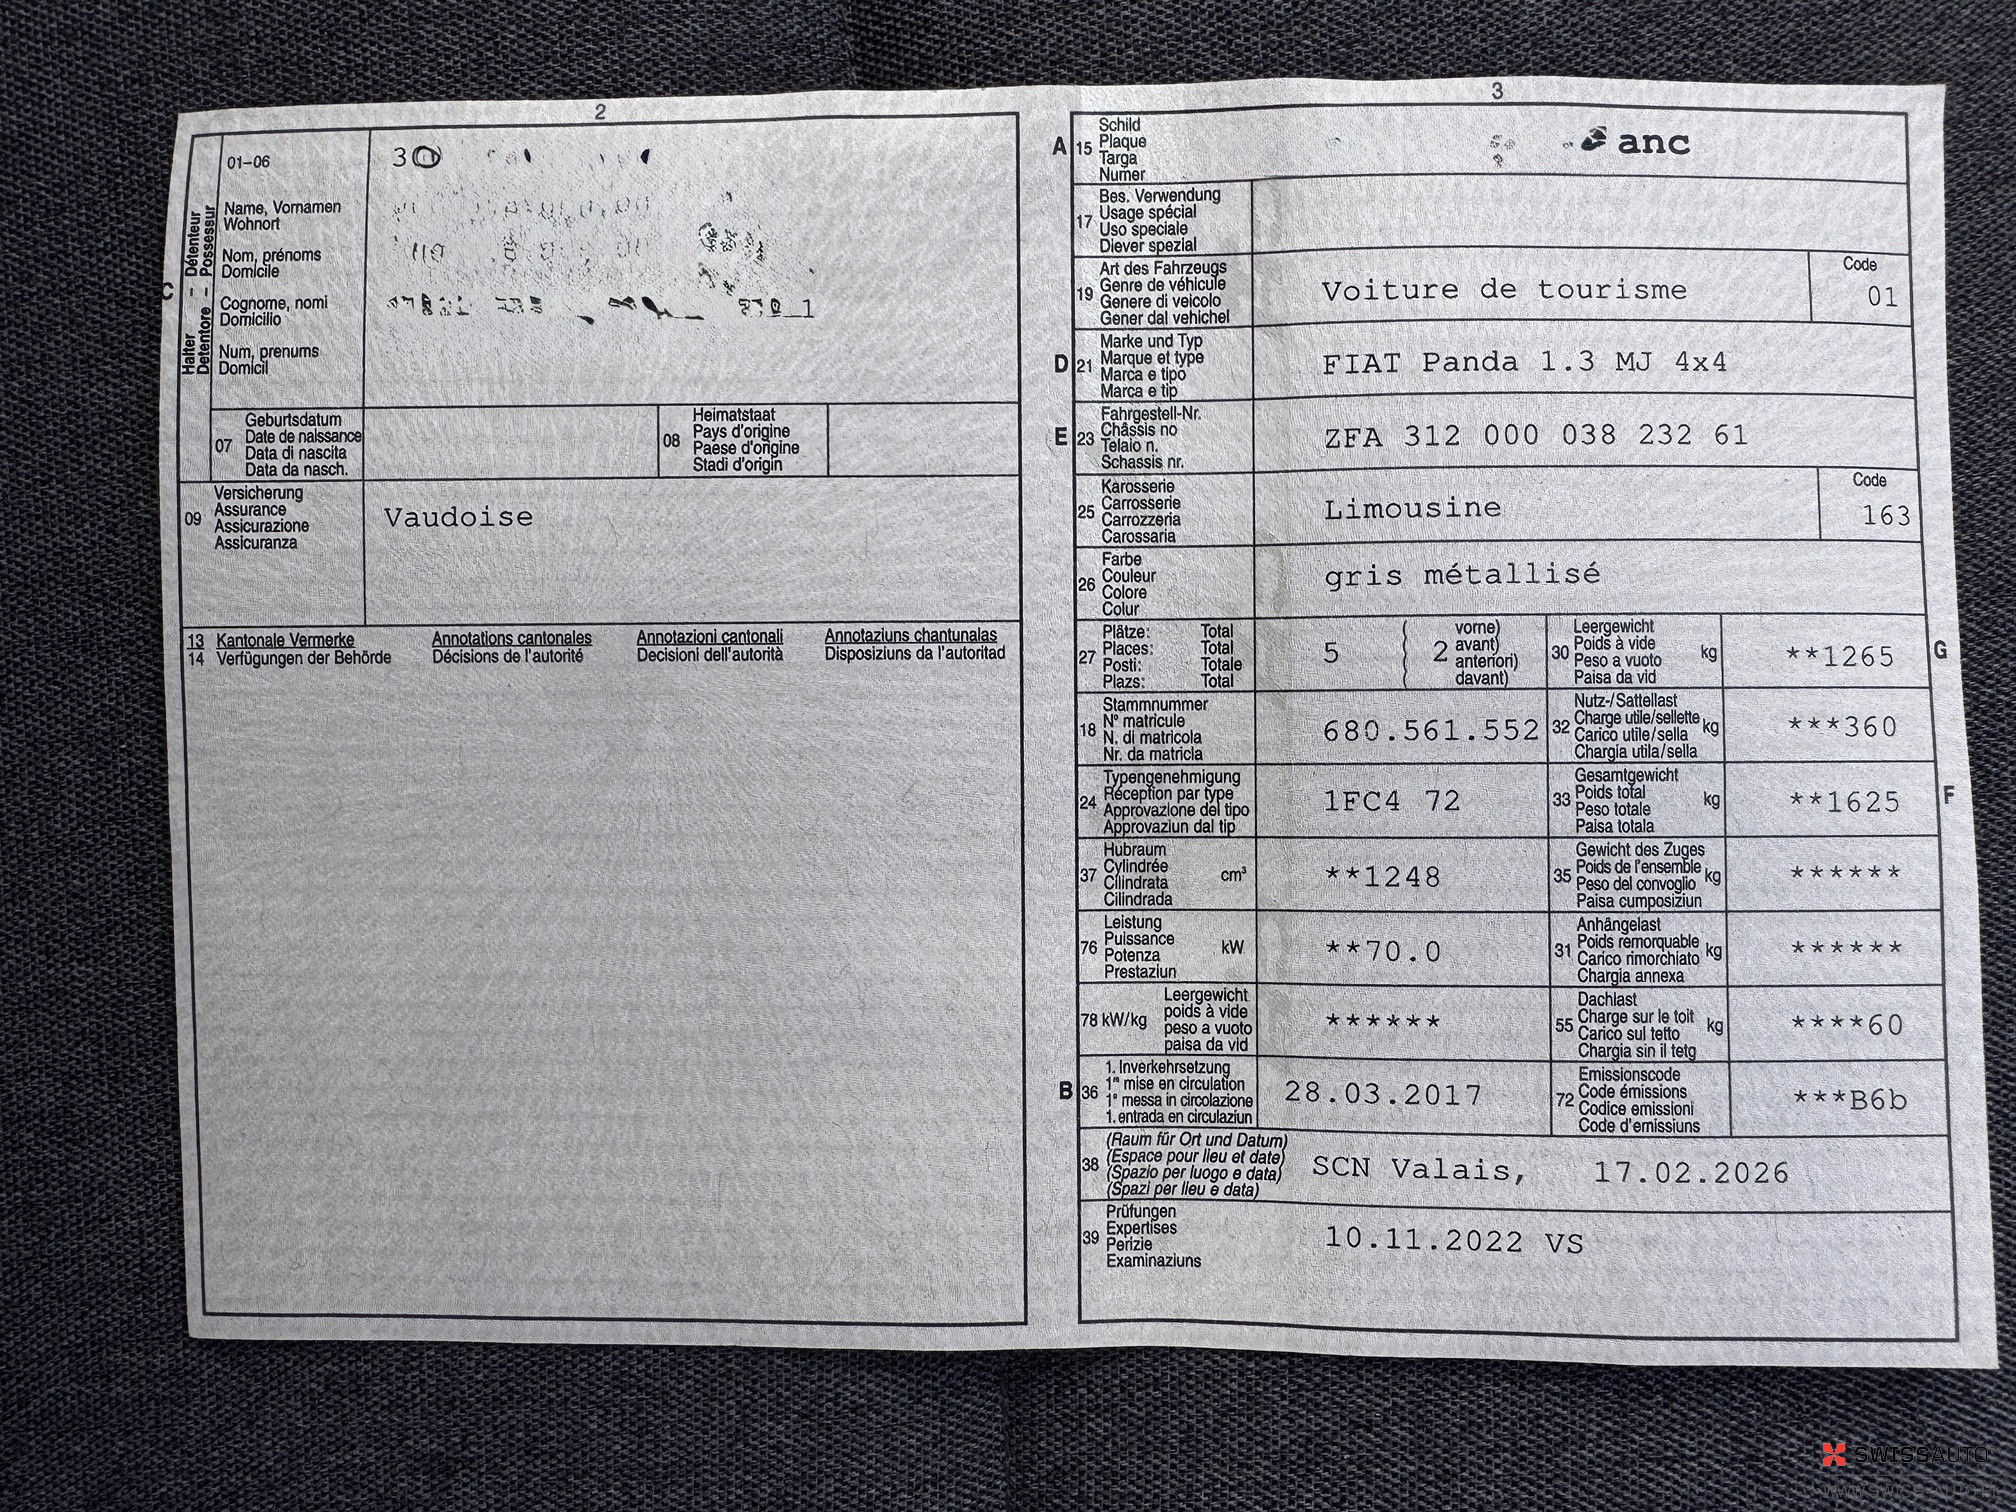 2
01-06
30
Halter - Détenteur
Detentore - Possessur
C
Name, Vornamen
Wohnort
Nom, prénoms
Domicile
Cognome, nomi
Domicilio
Num, prenums
Domicil
07
Geburtsdatum
Date de naissance
Data di nascita
Data da nasch.
08
Heimatstaat
Pays d'origine
Paese d'origine
Stadi d'origin
09
Versicherung
Assurance
Assicurazione
Assicuranza
Vaudoise
13 Kantonale Vermerke Annotations cantonales Annotazioni cantonali Annotaziuns chantunalas
14 Verfügungen der Behörde Décisions de l'autorité Decisioni dell'autorità Disposiziuns da l'autoritad
3
A 15
Schild
Plaque
Targa
Numer
anc
17
Bes. Verwendung
Usage spécial
Uso speciale
Diever spezial
19
Art des Fahrzeugs
Genre de véhicule
Genere di veicolo
Gener dal vehichel
Voiture de tourisme
Code
01
D 21
Marke und Typ
Marque et type
Marca e tipo
Marca e tip
FIAT Panda 1.3 MJ 4x4
E 23
Fahrgestell-Nr.
Châssis no
Telaio n.
Schassis nr.
ZFA 312 000 038 232 61
25
Karosserie
Carrosserie
Carrozzeria
Carossaria
Limousine
Code
163
26
Farbe
Couleur
Colore
Colur
gris métallisé
27
Plätze: Total
Places: Total
Posti: Totale
Plazs: Total
5
2
vorne)
avant)
anteriori)
davant)
30
Leergewicht
Poids à vide
Peso a vuoto
Paisa da vid
kg
**1265
G
18
Stammnummer
N° matricule
N. di matricola
Nr. da matricla
680.561.552
32
Nutz-/Sattellast
Charge utile/sellette
Carico utile/sella
Chargia utila/sella
kg
***360
24
Typengenehmigung
Réception par type
Approvazione del tipo
Approvaziun dal tip
1FC4 72
33
Gesamtgewicht
Poids total
Peso totale
Paisa totala
kg
**1625
F
37
Hubraum
Cylindrée
Cilindrata
Cilindrada
cm³
**1248
35
Gewicht des Zuges
Poids de l'ensemble
Peso del convoglio
Paisa cumposiziun
kg
******
76
Leistung
Puissance
Potenza
Prestaziun
kW
**70.0
31
Anhängelast
Poids remorquable
Carico rimorchiato
Chargia annexa
kg
******
78 kW/kg
Leergewicht
poids à vide
peso a vuoto
paisa da vid
******
55
Dachlast
Charge sur le toit
Carico sul tetto
Chargia sin il tetg
kg
****60
B 36
1. Inverkehrsetzung
1re mise en circulation
1a messa in circolazione
1. entrada en circulaziun
28.03.2017
72
Emissionscode
Code émissions
Codice emissioni
Code d'emissiuns
***B6b
38
(Raum für Ort und Datum)
(Espace pour lieu et date)
(Spazio per luogo e data)
(Spazi per lieu e data)
SCN Valais, 17.02.2026
39
Prüfungen
Expertises
Perizie
Examinaziuns
10.11.2022 VS
SWISSAUTO